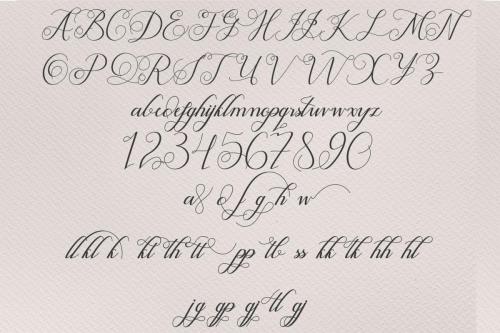 ABCDEFGHIJKLMN
OPQRSTUVWXYZ
abcdefghijklmnopqrstuvwxyz
1234567890
a d f g h w
ll kl k kt th tt pp tb ss kk tk hh ht
jg gp gj tl gj